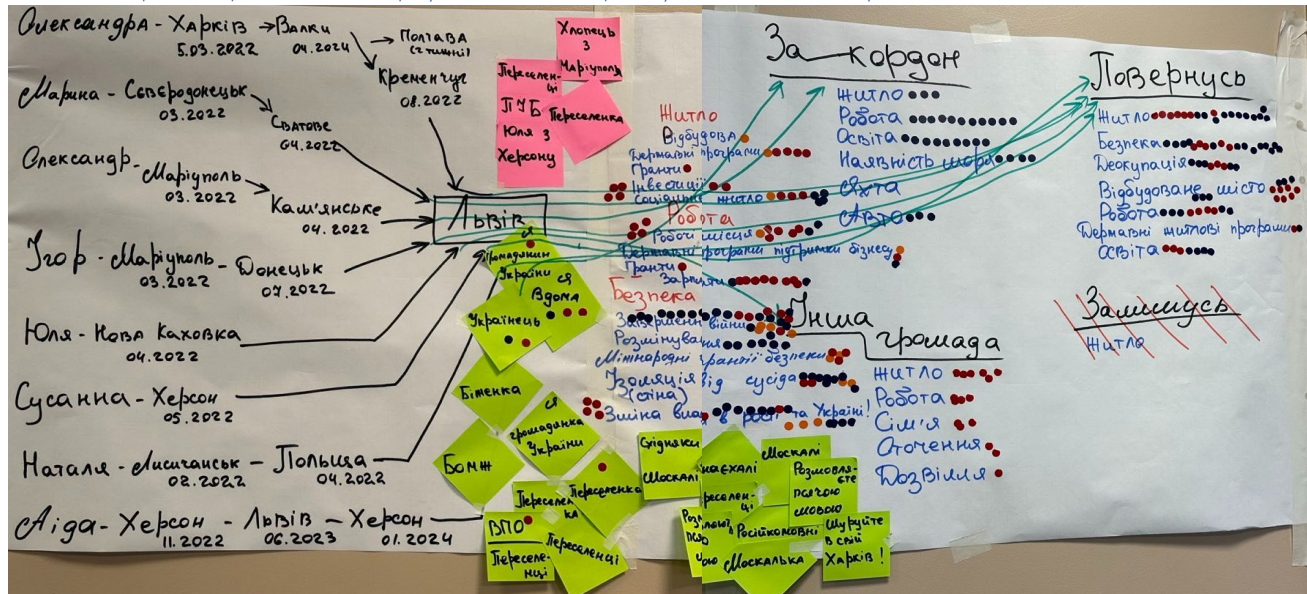 Олександра - Харків → Валки → Полтава
5.03.2022 04.2024 (2 тижні)
Кременчуг
08.2022
Марина - Сєвєродонецьк
03.2022
Сватове
04.2022
Олександр - Маріуполь
03.2022
Кам'янське
04.2022
Ігор - Маріуполь - Донецьк
03.2022 07.2022
Юля - Нова Каховка
04.2022
Сусанна - Херсон
05.2022
Наталя - Лисичанськ - Польща
02.2022 04.2022
Аіда - Херсон - Львів - Херсон
11.2022 06.2023 01.2024
Львів
Хлопець
з
Маріуполя
Переселен-
ці
Юля з
Херсону
Переселенка
Я
громадянин
України
Я
Вдома
Українець
Біженка
Я
громадянка
України
Бомж
Переселен
ка
Переселенка
ВПО
Переселе-
нці
Переселенці
Східняки
Москалі
Москалі
Розмовля-
єте
мовою
Російкомовні
Москалька
Шуруйте
в свій
Харків!
Житло
Відбудова
Державні програми
Гранти
Інвестиції
Соціальне житло
Робота
Робочі місця
Державні програми підтримки бізнесу
Гранти
Зарплати
Безпека
Завершення війни
Розмінування
Міжнародні гарантії безпеки
Ізоляція від сусіда
(стіна)
Зміна влади в росії та Україні!
За кордон
Житло
Робота
Освіта
Наявність моря
Яхта
Авто
Інша
громада
Житло
Робота
Сім'я
Оточення
Дозвілля
Повернусь
Житло
Безпека
Деокупація
Відбудоване місто
Робота
Державні житлові програми
Освіта
Залишусь
Житло